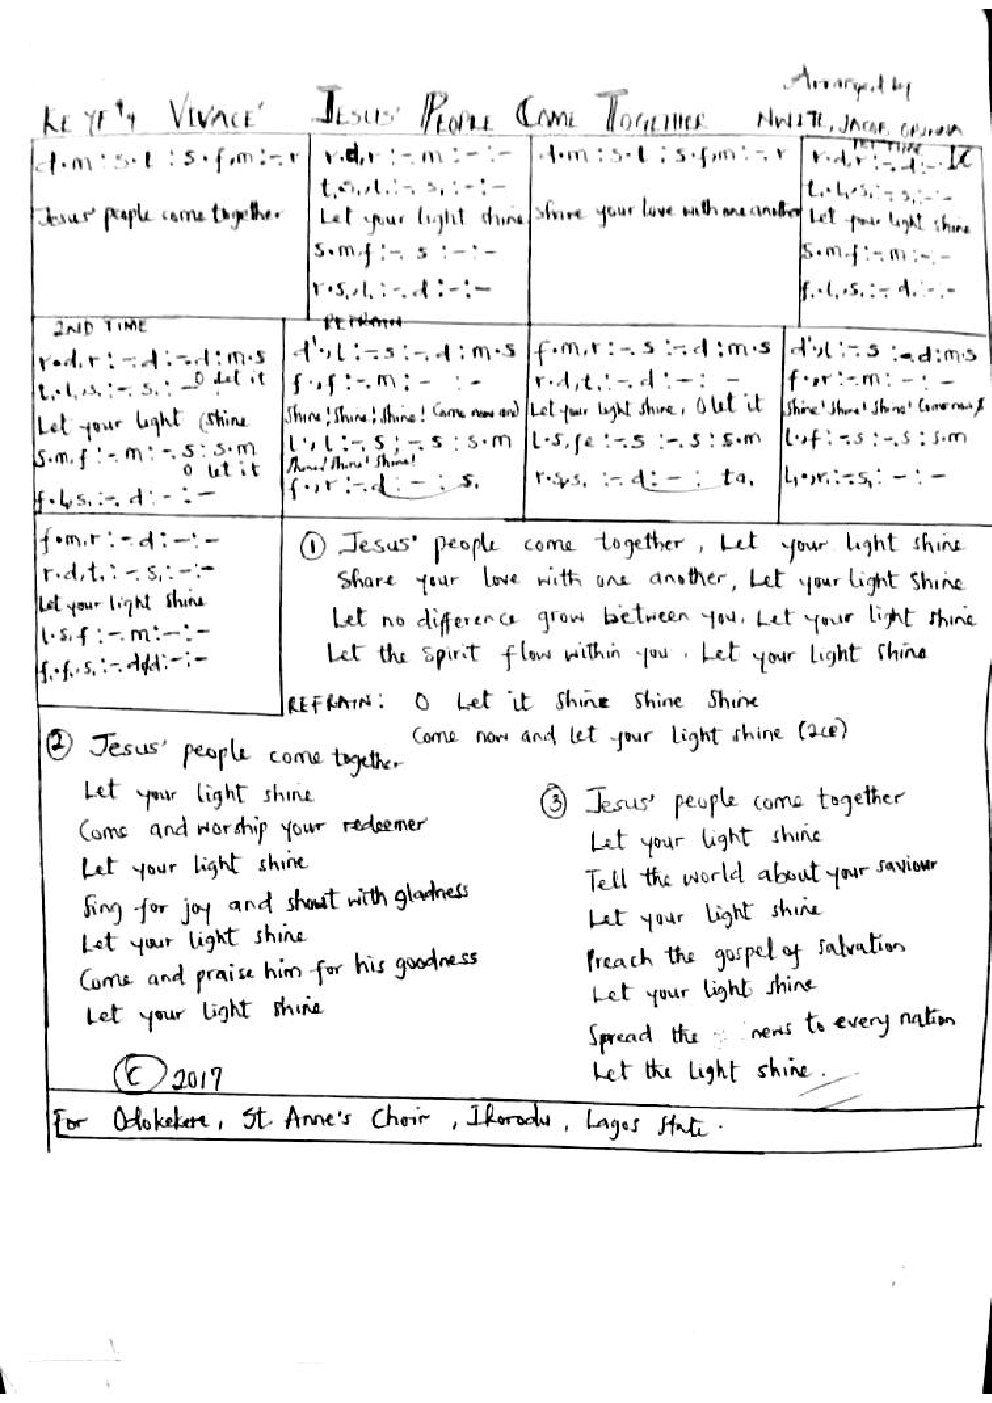 VIVACE' JESUS' PEOPLE COME TOGETHER
Arranged by
d.m : s.l : s.f,m : -. r
Jesus' people come together
r.d,r : -. m : - : -
t,.l, : -. s, : - : -
Let your light shine
s.m,f : -. s : - : -
r.s,,l, : -. d : - : -
d.m : s.l : s.f,m : -. r
Share your love with one another
1ST TIME
r.d,r : -. d : -
t,.l,,s, : -. s, : - : -
Let your light shine
s.m,f : -. m : - : -
f,.l,,s, : -. d, : - : -
2ND TIME
r.d,r : -. d : -. d : m.s
t,.l,,s, : -. s, : - O let it
Let your light (shine
s.m,f : -. m : -. s : s.m
O let it
f,.l,,s, : -. d : - : -
REFRAIN
d'.,l : -. s : -. d : m.s
f.,f : -. m : - : -
Shine! Shine! Shine! Come now and
l.,l : -. s : -. s : s.m
Shine! Shine! Shine!
f.,r : -. d : - : s,
f.m,r : -. s : -. d : m.s
r.d,t, : -. d : - : -
Let your light shine, O let it
l.s,fe : -. s : -. s : s.m
r.s,,s, : -. d : - : ta,
d'.,l : -. s : -. d : m.s
f.,r : -. m : - : -
Shine! Shine! Shine! Come now &
l.,f : -. s : -. s : s.m
l,.,r, : -. s, : - : -
f.m,r : -. d : - : -
r.d,t, : -. s, : - : -
Let your light shine
l.s,f : -. m : - : -
f,.f,,s, : -. d : - : -
① Jesus' people come together, Let your light shine
Share your love with one another, Let your light shine
Let no difference grow between you, Let your light shine
Let the spirit flow within you, Let your light shine
REFRAIN: O Let it shine shine shine
Come now and let your light shine (2ce)
② Jesus' people come together
Let your light shine
Come and worship your redeemer
Let your light shine
Sing for joy and shout with gladness
Let your light shine
Come and praise him for his goodness
Let your light shine
③ Jesus' people come together
Let your light shine
Tell the world about your saviour
Let your light shine
Preach the gospel of salvation
Let your light shine
Spread the news to every nation
Let the light shine.
© 2017
For Odokekere, St. Anne's Choir, Ikorodu, Lagos State.